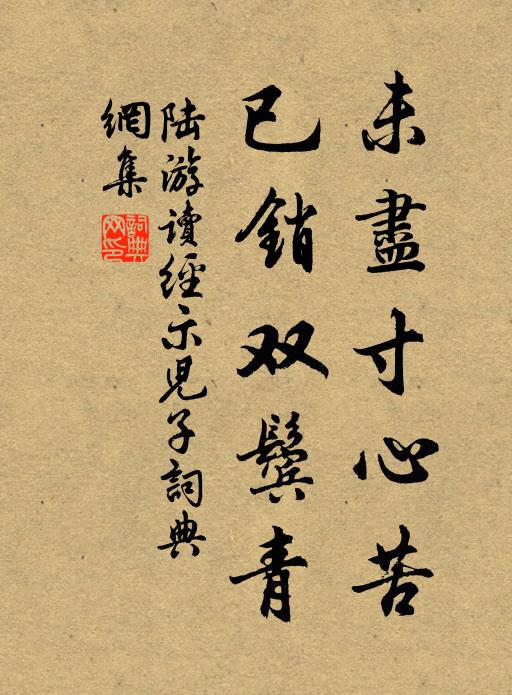 未盡寸心苦
已銷双鬓青
陆游讀經示児子詞典
網集
詞典
网印